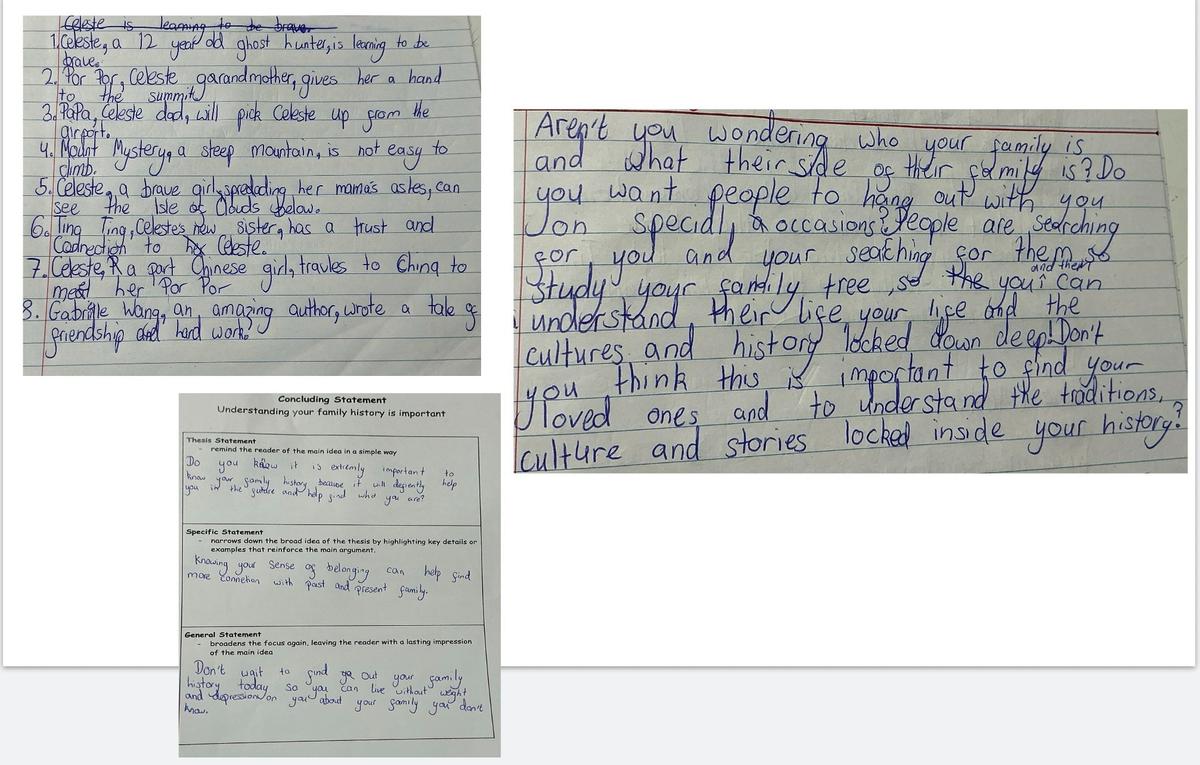 Celeste is learning to be brave
1. Celeste, a 12 year old ghost hunter, is learning to be
brave.
2. Por Por, Celeste garandmother, gives her a hand
to the summit
3. PaPa, Celeste dad, will pick Celeste up from the
airport.
4. Mount Mystery, a steep mountain, is not easy to
climb.
5. Celeste, a brave girl, spredading her mama's astes, can
see the Isle of Clouds below.
6. Ting Ting, Celestes new sister, has a trust and
Cadnection to Celeste.
7. Celeste, a part Chinese girl, travles to China to
meet her Por Por
8. Gabrielle Wang, an amazing author, wrote a tale of
friendship and hard work.
Aren't you wondering who your family is
and what their side of their family is? Do
you want people to hang out with you
on special occasions? People are searching
for you and your seatching for them so
and then
study your family tree, so the you can
understand their life your life and the
cultures and history locked down deep! Don't
you think this is important to find your
loved ones and to understand the traditions,
culture and stories locked inside your history?
Concluding Statement
Understanding your family history is important
Thesis Statement
- remind the reader of the main idea in a simple way
Do you know it is extremly important to
know your family history because it will defiently help
you in the future and help find who you are?
Specific Statement
- narrows down the broad idea of the thesis by highlighting key details or
examples that reinforce the main argument.
Knowing your sense of belonging can help find
more connetion with past and present family.
General Statement
- broadens the focus again, leaving the reader with a lasting impression
of the main idea
Don't wait to find out your family
history today so you can live without weght
and depression on you about your family you don't
know.